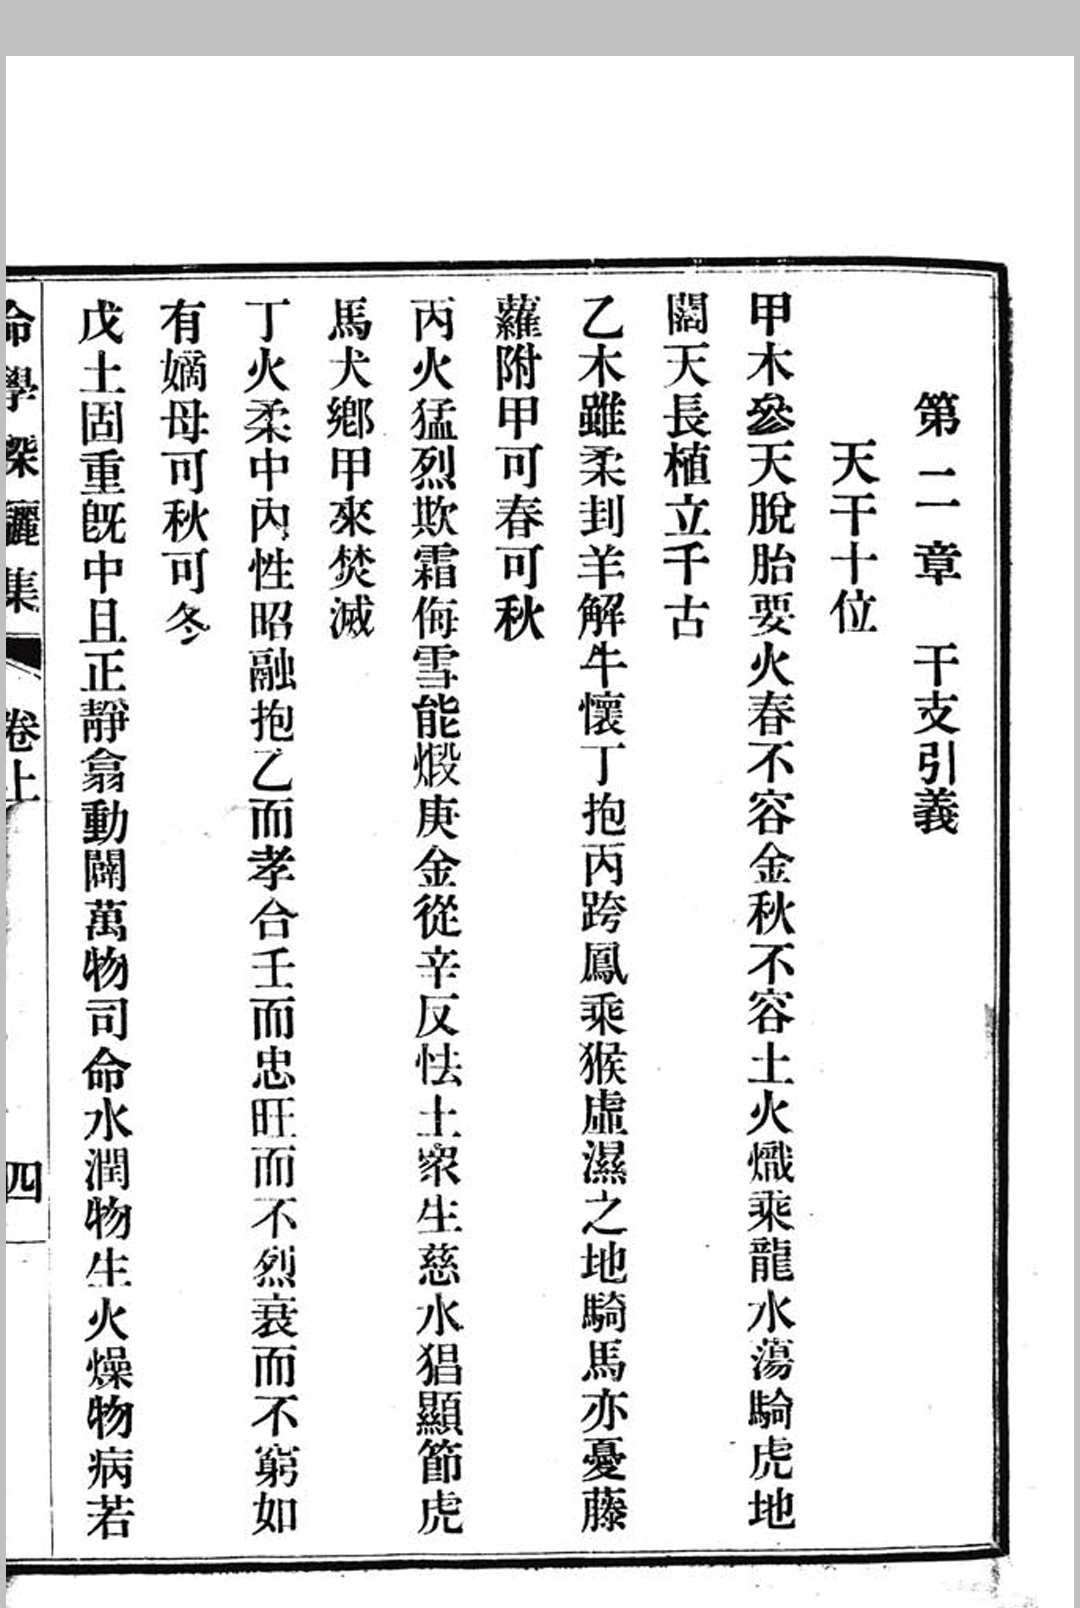 第二章　干支引義
天干十位
甲木參天脫胎要火春不容金秋不容土火熾乘龍水蕩騎虎地
闊天長植立千古
乙木雖柔刲羊解牛懷丁抱丙跨鳳乘猴虛濕之地騎馬亦憂藤
蘿附甲可春可秋
丙火猛烈欺霜侮雪能煅庚金從辛反怯土衆生慈水猖顯節虎
馬犬鄉甲來焚滅
丁火柔中內性昭融抱乙而孝合壬而忠旺而不烈衰而不窮如
有嫡母可秋可冬
戊土固重旣中且正靜翕動闢萬物司命水潤物生火燥物病若
命學 集　卷上　四